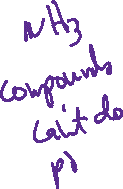 NH3
compounds
can't do
p)